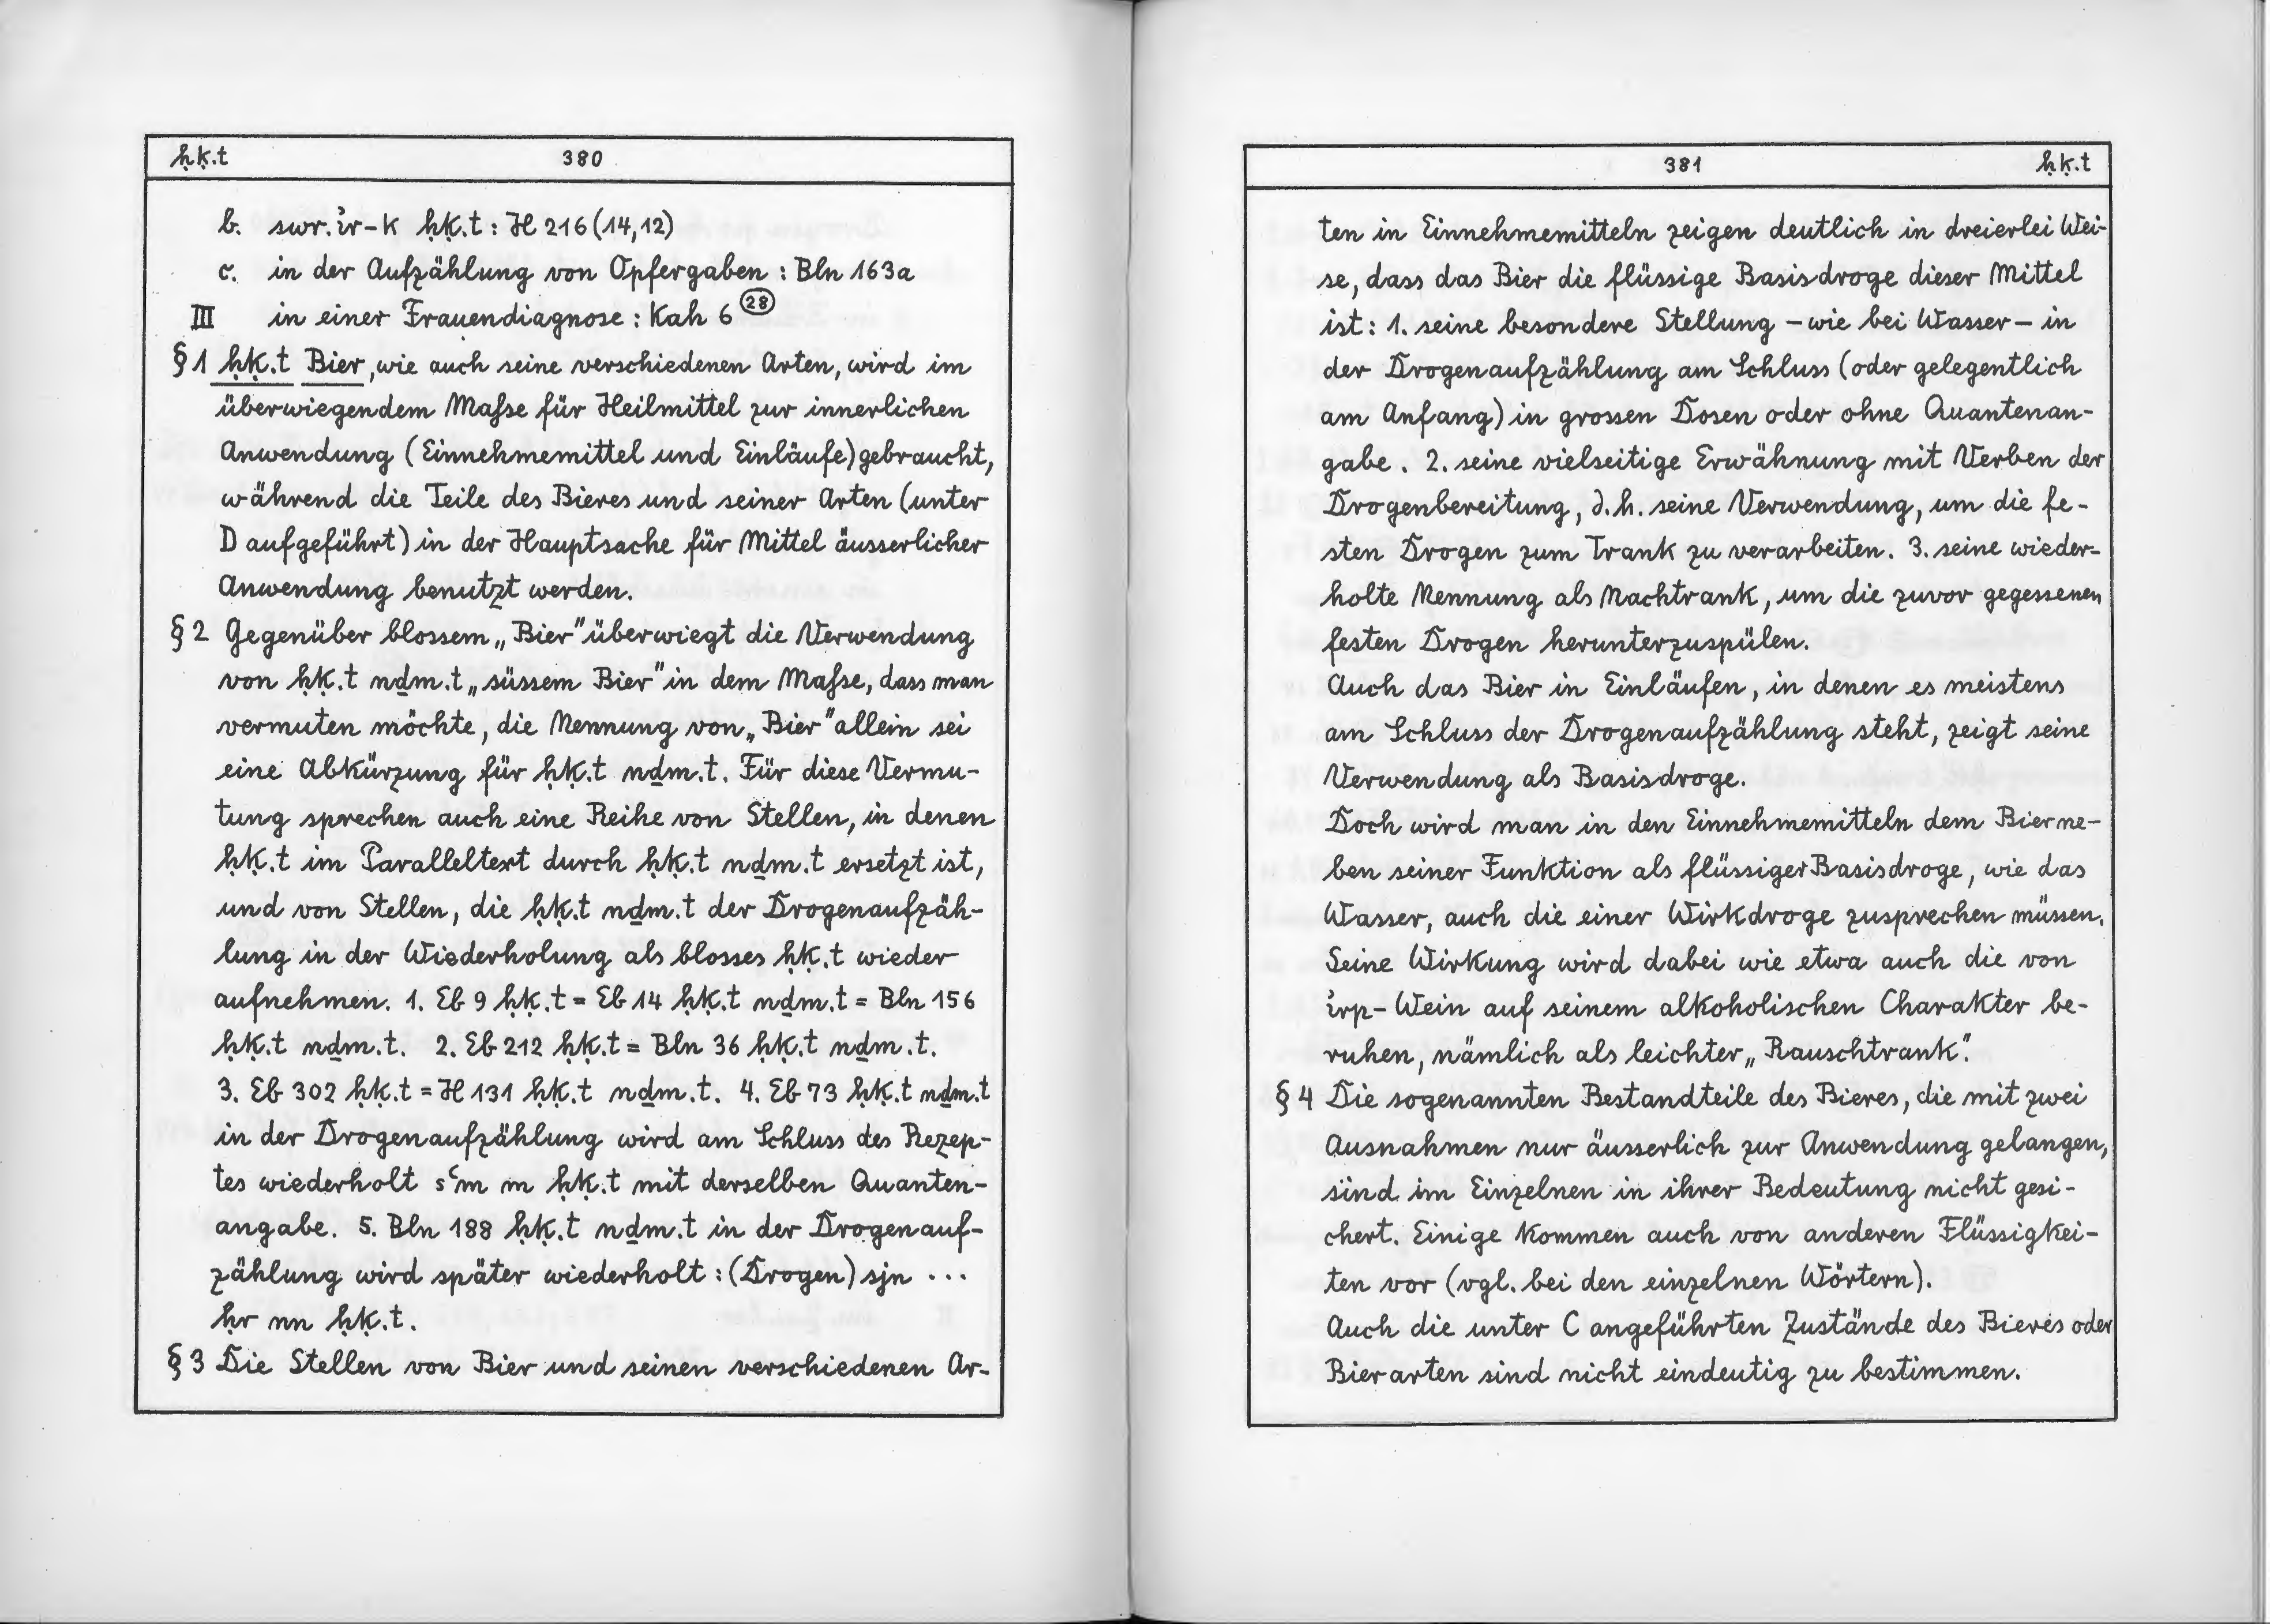 ḥḳ.t 380
b. swr.ı͗r-k ḥḳ.t : H 216 (14,12)
c. in der Aufzählung von Opfergaben : Bln 163a
III in einer Frauendiagnose : Kah 6 (28)
§ 1 ḥḳ.t Bier, wie auch seine verschiedenen Arten, wird im
überwiegendem Maße für Heilmittel zur innerlichen
Anwendung (Einnehmemittel und Einläufe) gebraucht,
während die Teile des Bieres und seiner Arten (unter
D aufgeführt) in der Hauptsache für Mittel äusserlicher
Anwendung benutzt werden.
§ 2 Gegenüber blossem „Bier" überwiegt die Verwendung
von ḥḳ.t nḏm.t „süssem Bier" in dem Maße, dass man
vermuten möchte, die Nennung von „Bier" allein sei
eine Abkürzung für ḥḳ.t nḏm.t. Für diese Vermu-
tung sprechen auch eine Reihe von Stellen, in denen
ḥḳ.t im Paralleltext durch ḥḳ.t nḏm.t ersetzt ist,
und von Stellen, die ḥḳ.t nḏm.t der Drogenaufzäh-
lung in der Wiederholung als blosses ḥḳ.t wieder
aufnehmen. 1. Eb 9 ḥḳ.t = Eb 14 ḥḳ.t nḏm.t = Bln 156
ḥḳ.t nḏm.t. 2. Eb 212 ḥḳ.t = Bln 36 ḥḳ.t nḏm.t.
3. Eb 302 ḥḳ.t = H 131 ḥḳ.t nḏm.t. 4. Eb 73 ḥḳ.t nḏm.t
in der Drogenaufzählung wird am Schluss des Rezep-
tes wiederholt sʿm m ḥḳ.t mit derselben Quanten-
angabe. 5. Bln 188 ḥḳ.t nḏm.t in der Drogenauf-
zählung wird später wiederholt : (Drogen) sjn ...
ḥr nn ḥḳ.t.
§ 3 Die Stellen von Bier und seinen verschiedenen Ar-
381 ḥḳ.t
ten in Einnehmemitteln zeigen deutlich in dreierlei Wei-
se, dass das Bier die flüssige Basisdroge dieser Mittel
ist : 1. seine besondere Stellung – wie bei Wasser – in
der Drogenaufzählung am Schluss (oder gelegentlich
am Anfang) in grossen Dosen oder ohne Quantenan-
gabe. 2. seine vielseitige Erwähnung mit Verben der
Drogenbereitung, d.h. seine Verwendung, um die fe-
sten Drogen zum Trank zu verarbeiten. 3. seine wieder-
holte Nennung als Nachtrank, um die zuvor gegessenen
festen Drogen herunterzuspülen.
Auch das Bier in Einläufen, in denen es meistens
am Schluss der Drogenaufzählung steht, zeigt seine
Verwendung als Basisdroge.
Doch wird man in den Einnehmemitteln dem Bier ne-
ben seiner Funktion als flüssiger Basisdroge, wie das
Wasser, auch die einer Wirkdroge zusprechen müssen.
Seine Wirkung wird dabei wie etwa auch die von
ı͗rp-Wein auf seinem alkoholischen Charakter be-
ruhen, nämlich als leichter „Rauschtrank".
§ 4 Die sogenannten Bestandteile des Bieres, die mit zwei
Ausnahmen nur äusserlich zur Anwendung gelangen,
sind im Einzelnen in ihrer Bedeutung nicht gesi-
chert. Einige kommen auch von anderen Flüssigkei-
ten vor (vgl. bei den einzelnen Wörtern).
Auch die unter C angeführten Zustände des Bieres oder
Bierarten sind nicht eindeutig zu bestimmen.